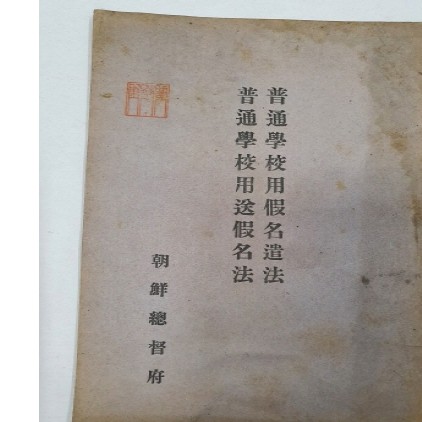 普通學校用假名遣法
普通學校用送假名法
朝鮮總督府